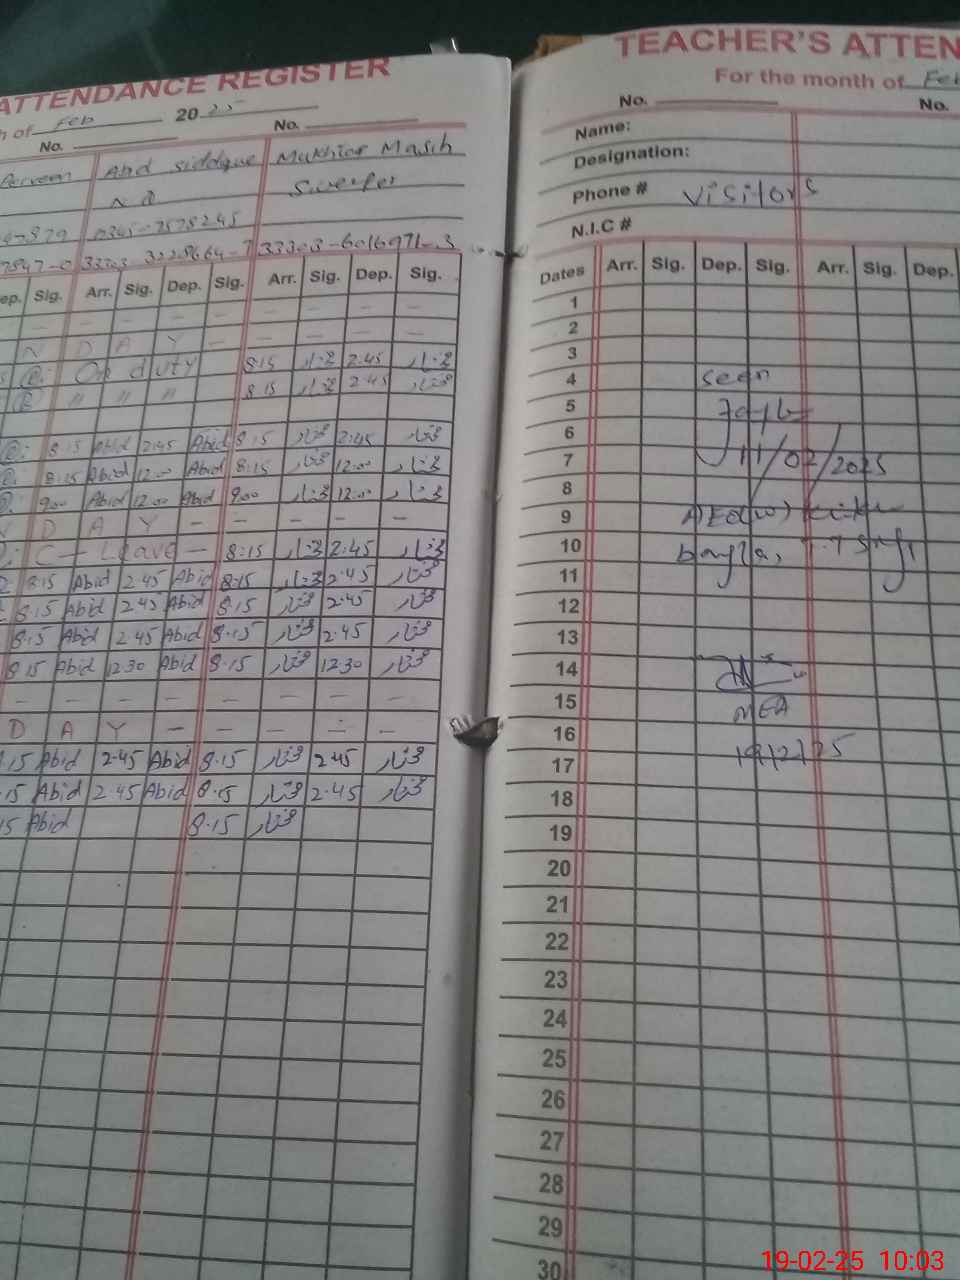 ATTENDANCE REGISTER
h of Feb 2025
No. No.
Perveen Abd siddque Mukhtar Masih
N Q Sweeper
47879 0345-7578245
7847-0 33303-3228664-7 33303-6016971-3
ep. Sig. Arr. Sig. Dep. Sig. Arr. Sig. Dep. Sig.
- - - - - - - - - -
N D A Y - - - - -
On duty 8:15 مختار 2:45 مختار
" " " 8:15 مختار 2:45 مختار
8:15 Abid 2:45 Abid 8:15 مختار 2:45 مختار
8:15 Abid 12:00 Abid 8:15 مختار 12:00 مختار
9:00 Abid 12:00 Abid 9:00 مختار 12:00 مختار
D A Y - - - - -
C - Leave - 8:15 مختار 2:45 مختار
8:15 Abid 2:45 Abid 8:15 مختار 2:45 مختار
8:15 Abid 2:45 Abid 8:15 مختار 2:45 مختار
8:15 Abid 2:45 Abid 8:15 مختار 2:45 مختار
8:15 Abid 12:30 Abid 8:15 مختار 12:30 مختار
- - - - - - - -
D A Y - - - - -
.15 Abid 2:45 Abid 8:15 مختار 2:45 مختار
.15 Abid 2:45 Abid 8:15 مختار 2:45 مختار
15 Abid 8:15 مختار
TEACHER'S ATTEN
For the month of Feb
No. No.
Name:
Designation:
Phone # visitors
N.I.C #
Dates Arr. Sig. Dep. Sig. Arr. Sig. Dep.
1
2
3
4 seen
5
6
7 11/02/2025
8
9 AEO(w)
10 bangla,
11
12
13
14
15 MEA
16
17 19/2/25
18
19
20
21
22
23
24
25
26
27
28
29
30
19-02-25 10:03